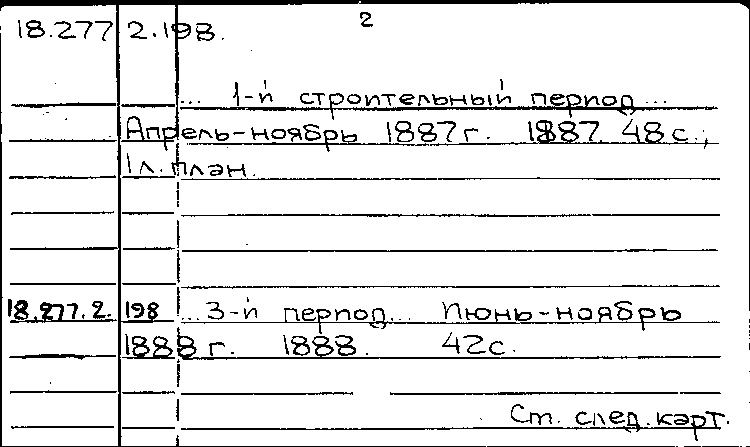 2
18.277 2.198.
... 1-й строительный период...
Апрель-ноябрь 1887 г. 1887. 48 с.,
1 л. план.
18.277.2. 198 ... 3-й период... Июнь-ноябрь
1888 г. 1888. 42 с.
См. след. карт.